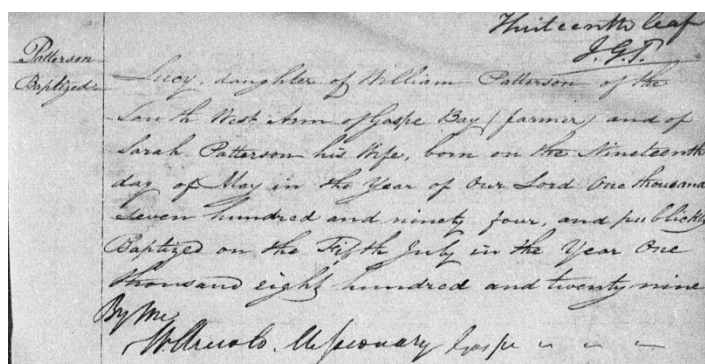 Thirteenth leaf
J.G.T.
Patterson
Baptized
Lucy, daughter of William Patterson of the
South West Arm of Gaspe Bay (farmer) and of
Sarah Patterson his Wife, born on the Nineteenth
day of May in the Year of Our Lord One thousand
Seven hundred and ninety four, and publickly
Baptized on the Fifth July in the Year One
thousand eight hundred and twenty nine
By Me
Missionary Gaspe